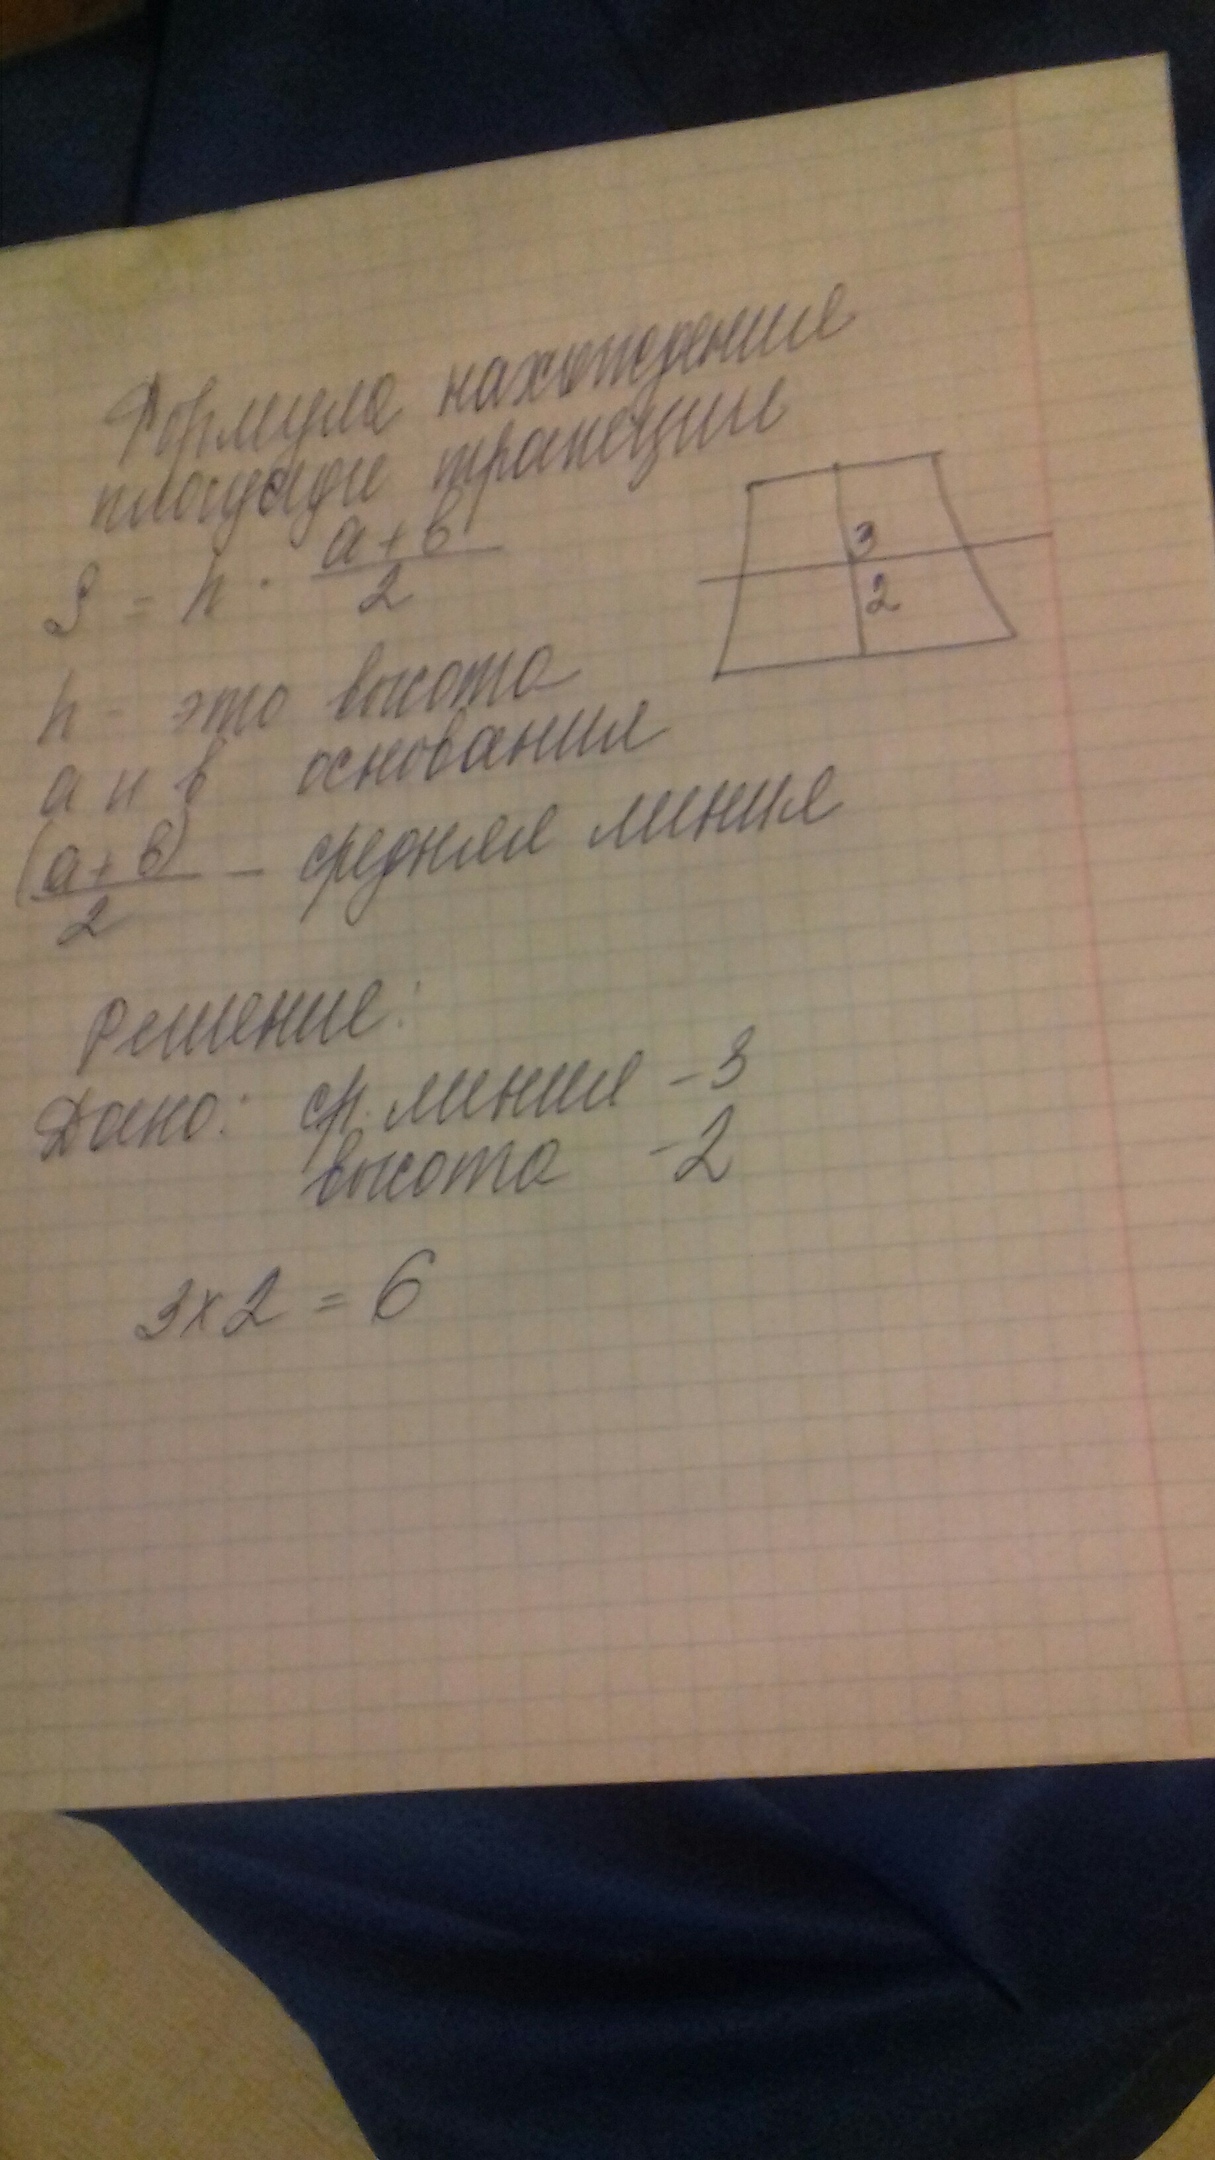 Формула нахождения
площади трапеции
S = h · (a + b) / 2
3
2
h - это высота
a и b основания
(a + b) / 2 - средняя линия
Решение:
Дано: ср. линия - 3
высота - 2
3 × 2 = 6